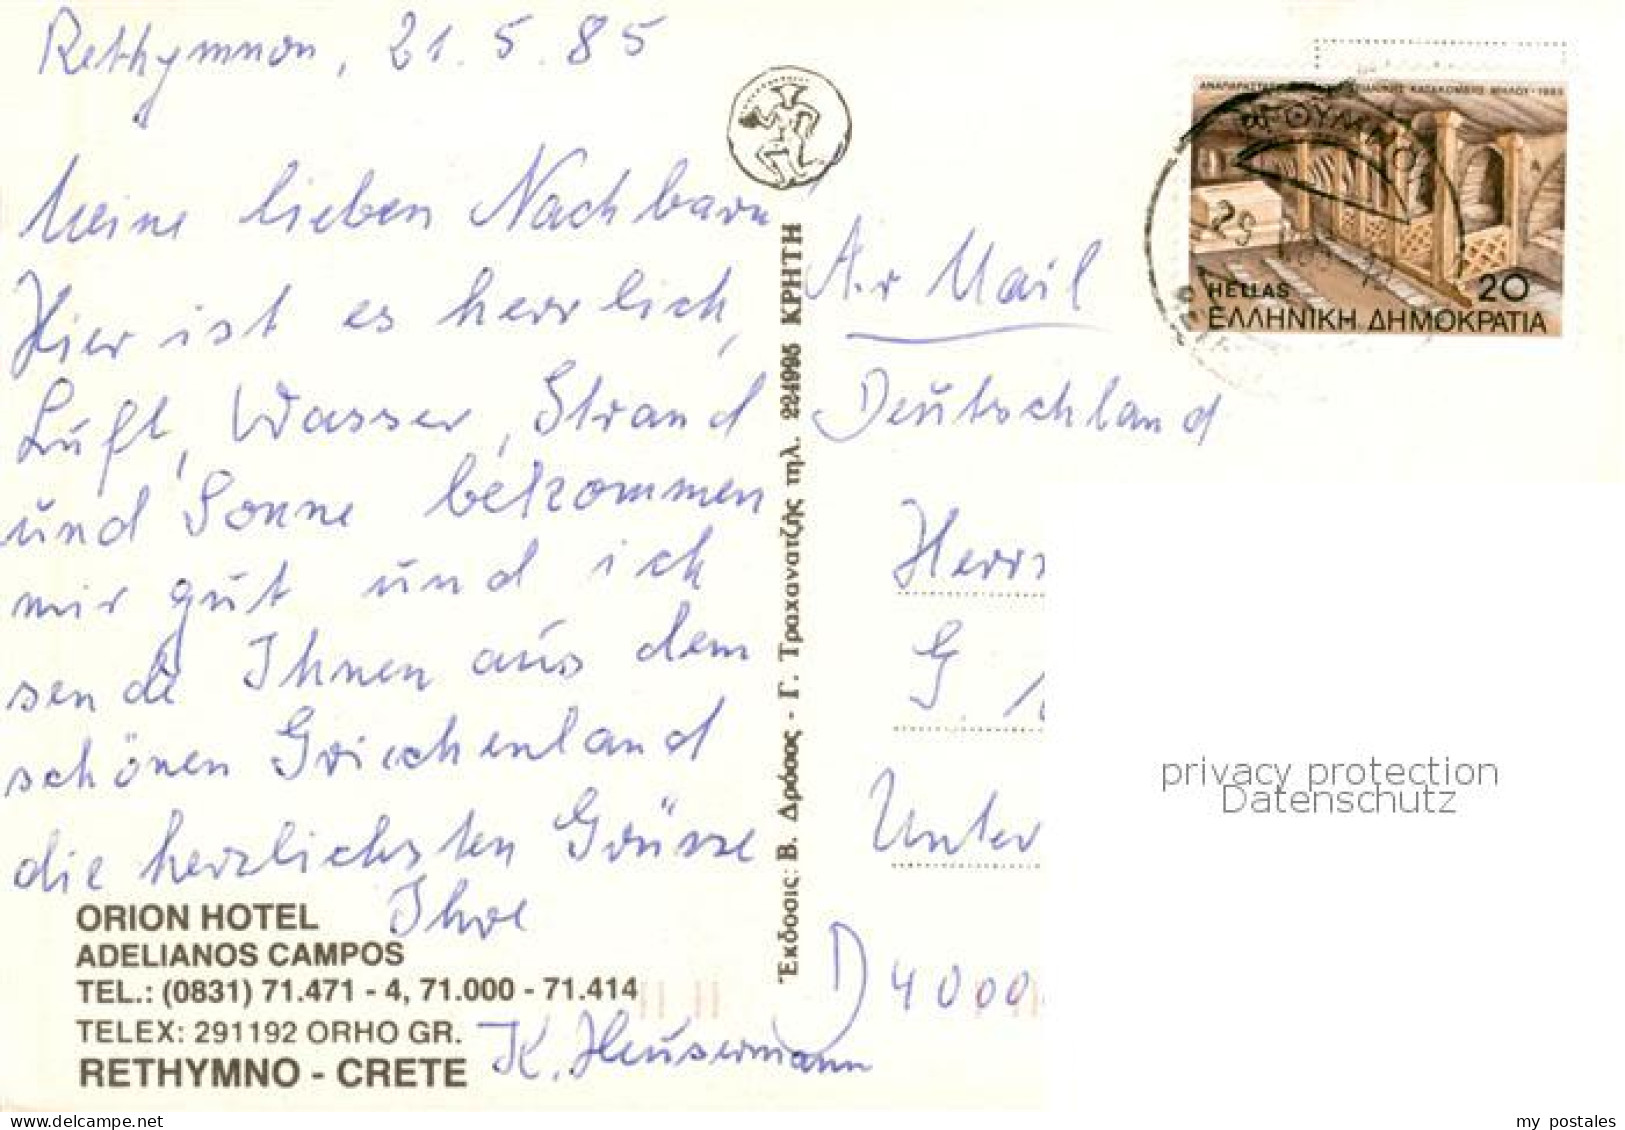 Rethymnon, 21.5.85
Meine lieben Nachbarn
Hier ist es herrlich,
Luft, Wasser, Strand
und Sonne bekommen
mir gut und ich
sende Ihnen aus dem
schönen Griechenland
die herzlichsten Grüsse
Ihre
K. Heusermann
ORION HOTEL
ADELIANOS CAMPOS
TEL.: (0831) 71.471 - 4, 71.000 - 71.414
TELEX: 291192 ORHO GR.
RETHYMNO - CRETE
Ἐκδοσις: Β. Δρόσος - Γ. Τραχανατζῆς τηλ. 224995 ΚΡΗΤΗ
Air Mail
Deutschland
Herrn
G.
Unter
D 4000
ΚΑΤΑΚΟΜΒΕΣ ΜΗΛΟΥ-1985
HELLAS 20
ΕΛΛΗΝΙΚΗ ΔΗΜΟΚΡΑΤΙΑ
privacy protection
Datenschutz
my postales